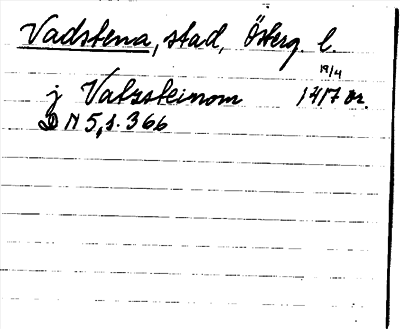 Vadstena, stad, Österg. l.
19/4
j Vatzsteinom 1417 or.
DN 5, s. 366